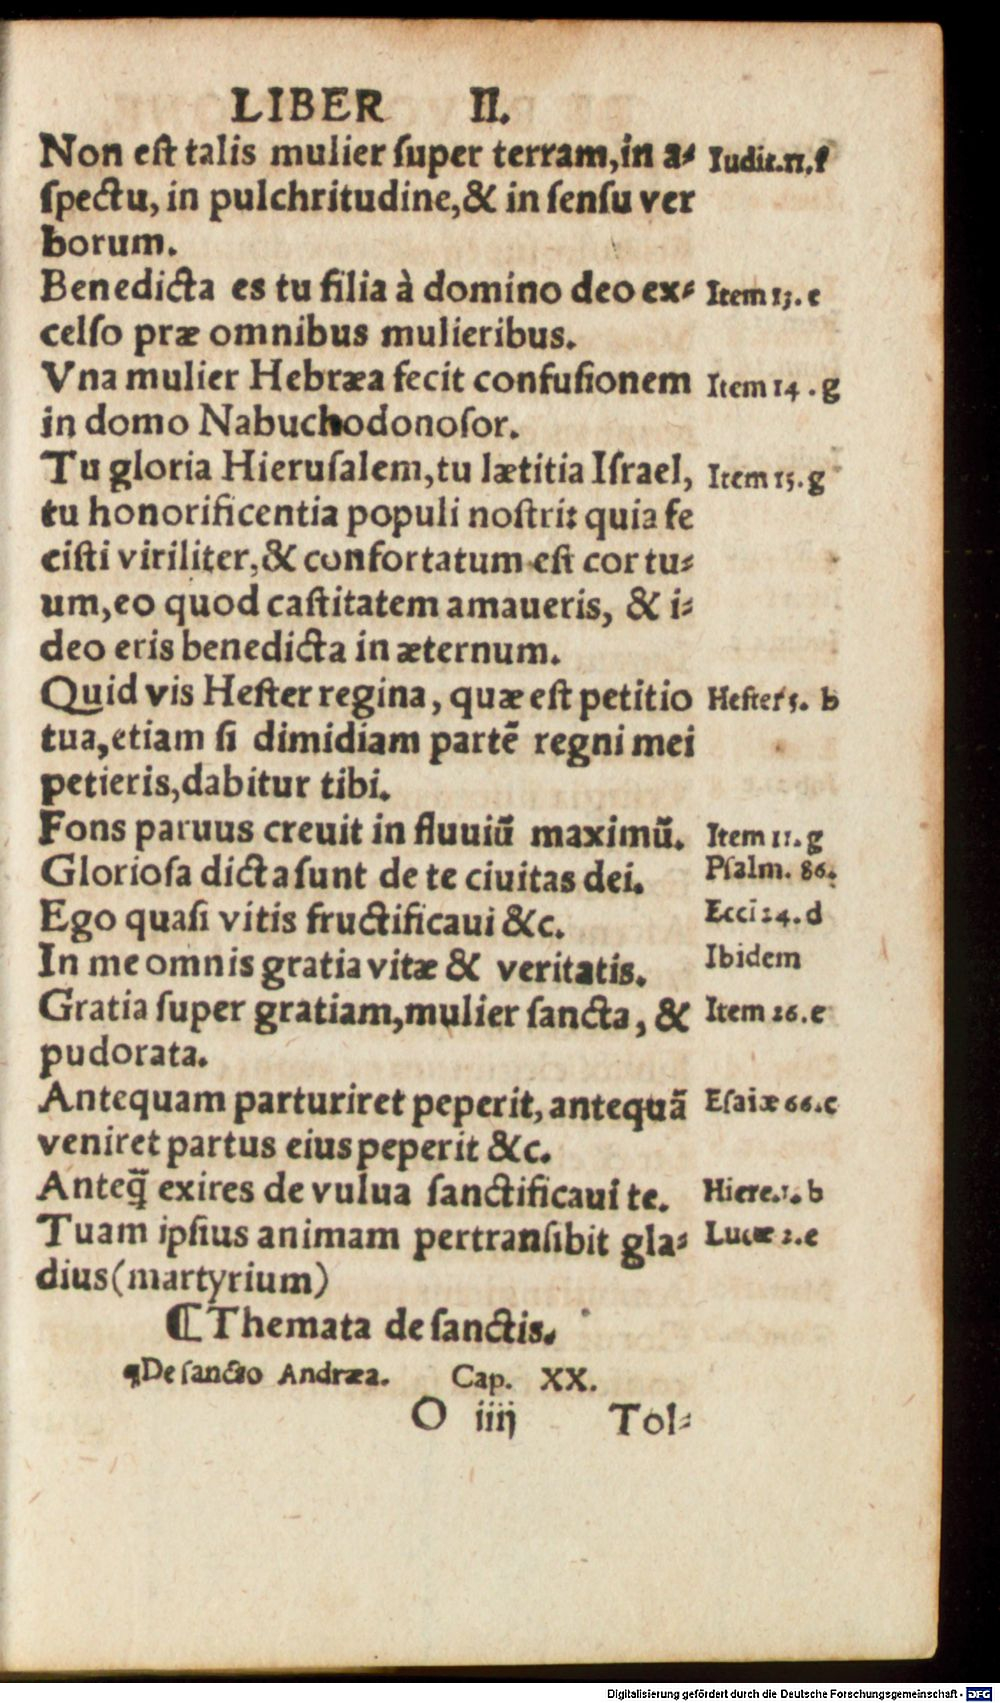 LIBER II.
Non est talis mulier ſuper terram, in a- Iudit.11.f
ſpectu, in pulchritudine, & in ſenſu ver
borum.
Benedicta es tu filia à domino deo ex- Item 13. e
celſo præ omnibus mulieribus.
Vna mulier Hebræa fecit confuſionem Item 14 . g
in domo Nabuchodonoſor.
Tu gloria Hieruſalem, tu lætitia Iſrael, Item 15. g
tu honorificentia populi noſtri: quia fe
ciſti viriliter, & confortatum eſt cor tu-
um, eo quod caſtitatem amaueris, & i-
deo eris benedicta in æternum.
Quid vis Heſter regina, quæ eſt petitio Heſter 5. b
tua, etiam ſi dimidiam partē regni mei
petieris, dabitur tibi.
Fons paruus creuit in fluuiū maximū. Item 11. g
Glorioſa dicta ſunt de te ciuitas dei. Pſalm. 86.
Ego quaſi vitis fructificaui &c. Eccl 24. d
In me omnis gratia vitæ & veritatis. Ibidem
Gratia ſuper gratiam, mulier ſancta, & Item 26. e
pudorata.
Antequam parturiret peperit, antequā Eſaiæ 66. c
veniret partus eius peperit &c.
Anteq̄ exires de vulua ſanctificaui te. Hiere. 1. b
Tuam ipſius animam pertranſibit gla- Lucæ 2. e
dius (martyrium)
⁋ Themata de ſanctis.
¶ De ſancto Andræa. Cap. XX.
O iiij Tol-
Digitalisierung gefördert durch die Deutsche Forschungsgemeinschaft - DFG